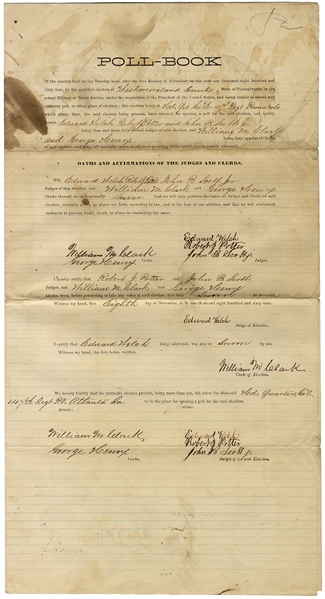 POLL-BOOK
Of the election held on the Tuesday next, after the first Monday of November, in the year one thousand eight hundred and
sixty four, by the qualified electors of Westmoreland County State of Pennsylvania, in the
actual Military or Naval Service, under the requisition of the President of the United States, and being unable to attend any
company poll, or other place of election; this election being at
which place, they, the said electors present, have selected for opening a poll for the said election, and
Edward Welch Rob J Potter and John B Scott Jr
being then and there duly elected Judges of said election, and William M. Clark
and George Henry being duly appointed Clerks
OATHS AND AFFIRMATIONS OF THE JUDGES AND CLERKS.
We Edward Welch Robt J Potter John B Scott Jr
Judges of this election, and William M Clark and George Henry
Clerks, severally do that we will duly perform the duties of Judges and Clerks of said
election, severally acting as above set forth, according to law, and to the best of our abilities, and that we will studiously
endeavor to prevent fraud, deceit, or abuse in conducting the same.
Edward Welch
Robert J Potter
William M Clark John B Scott Jr
George Henry Clerks. Judges.
I hereby certify that Robert J Potter and John B Scott
Judges, and William M. Clark and George Henry
Clerks, were, before proceeding to take any votes at said election, first duly sworn as aforesaid.
Witness my hand, this Eighth day of November, A. D. one thousand eight hundred and sixty four.
Edward Welch
Judge of Election.
I certify that Edward Welch Judge aforesaid, was also so Sworn by me.
Witness my hand, the date before written.
William M Clark
Clerk of Election.
We hereby Certify that the aforesaid electors present, being more than ten, did select the aforesaid Hed. Quarters Co E
Regt P.V. Atlanta Ga to be the place for opening a poll for the said election.
Attest:
Edward Welch
William M Clark Robert J Potter
George Henry John B Scott Jr
Clerks. Judges of said Election.